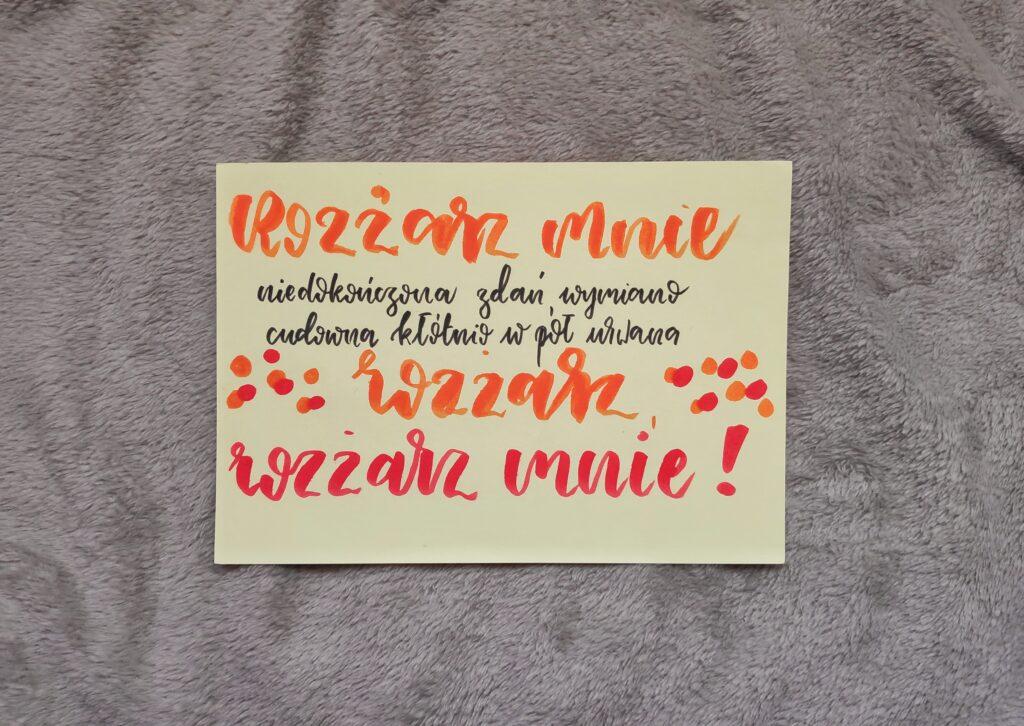 Rozżarz mnie
niedokończona zdań wymiano
cudowna kłótnio w pół urwana
rozżarz,
rozżarz mnie!